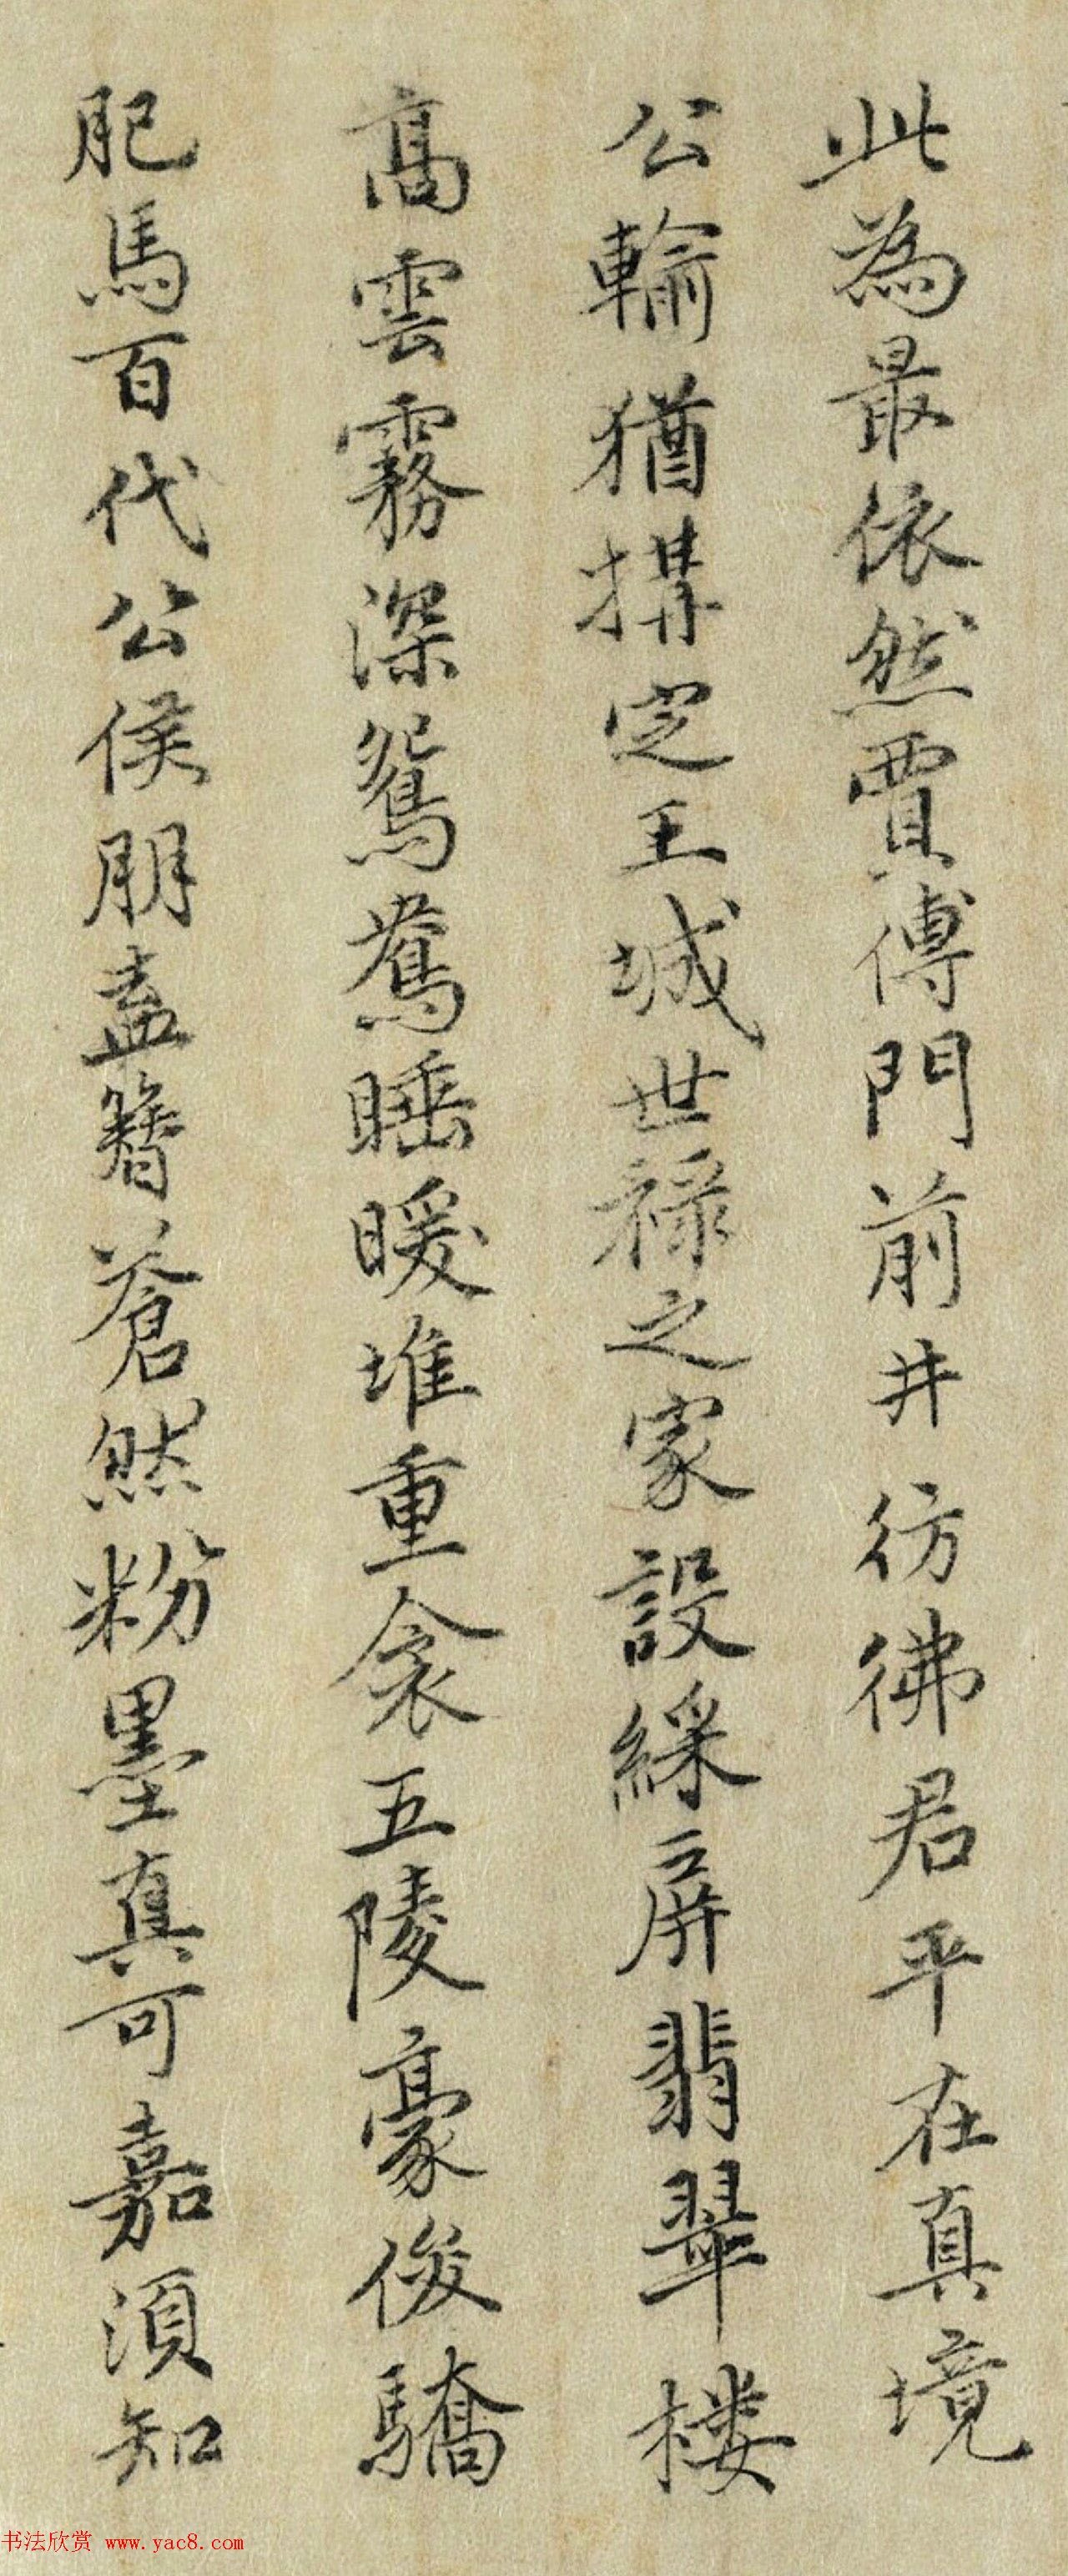 此為最依然賈傅門前井彷彿君平在真境
公輸猶構定王城世祿之家設綵屏翡翠樓
高雲霧深鴛鴦睡暖堆重衾五陵豪俊驕
肥馬百代公侯朋盍簪蒼然粉墨真可嘉須知
书法欣赏 www.yac8.com